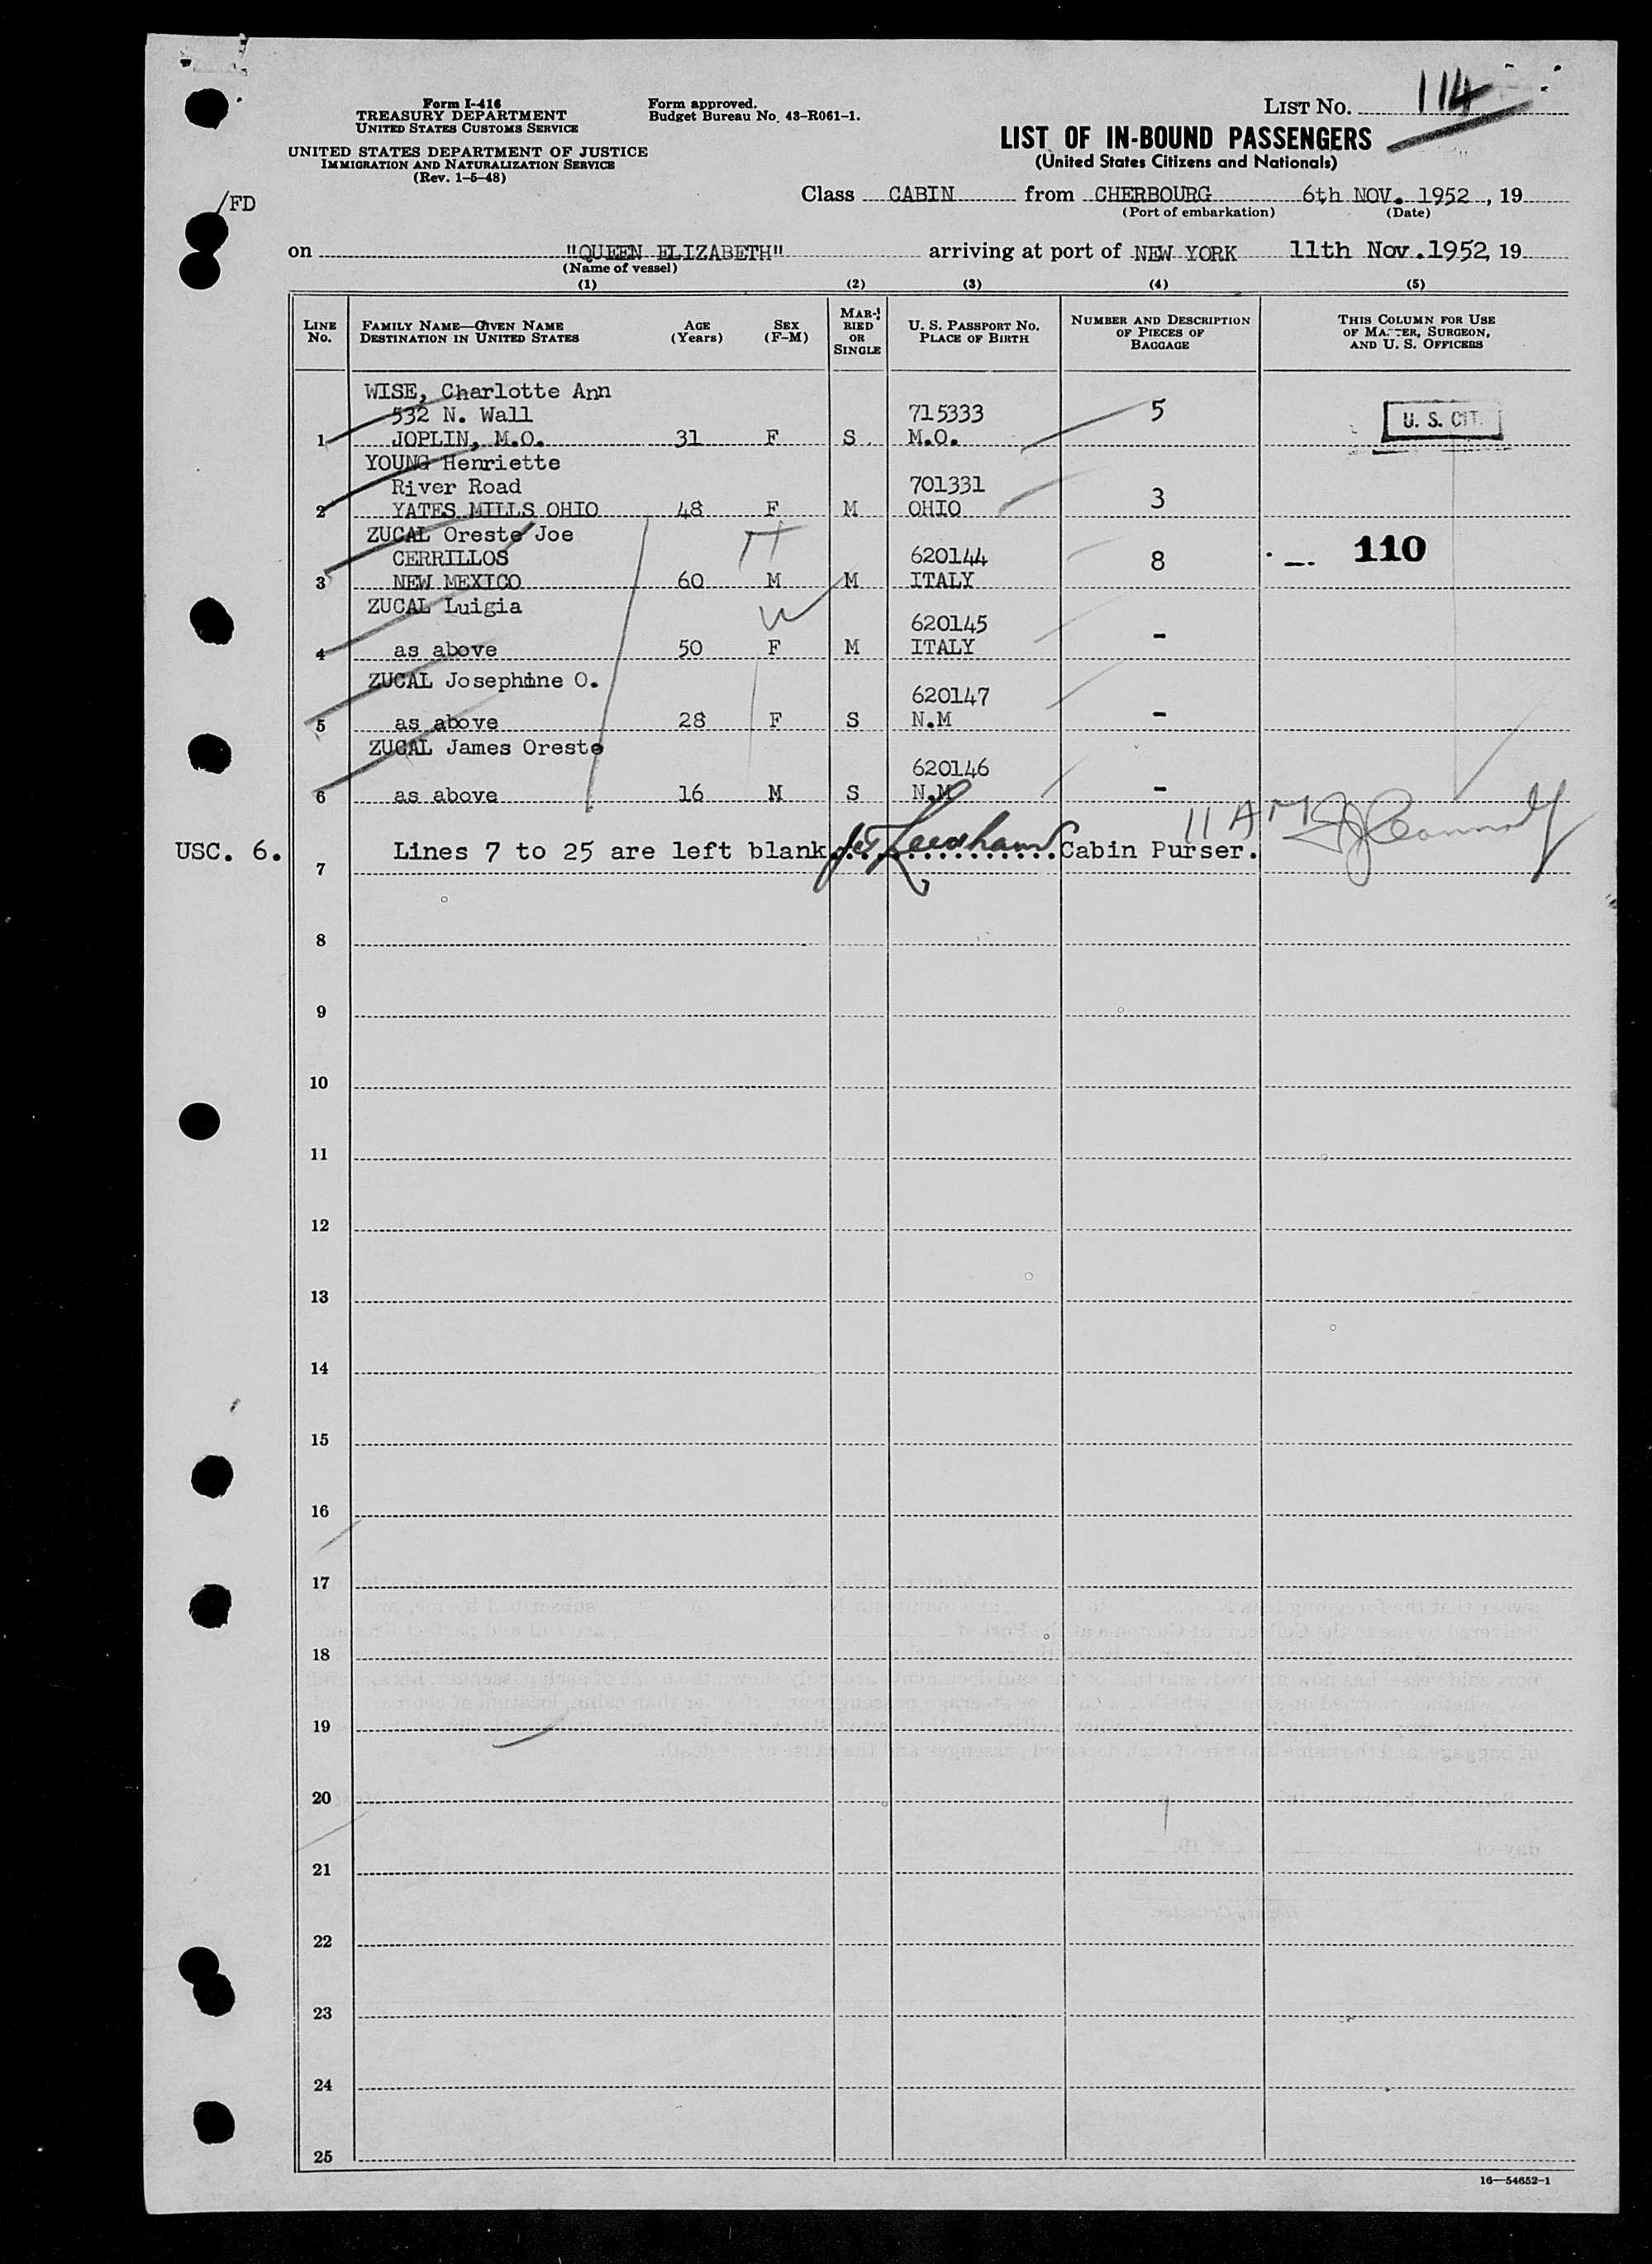 Form I-416
TREASURY DEPARTMENT
UNITED STATES CUSTOMS SERVICE
UNITED STATES DEPARTMENT OF JUSTICE
IMMIGRATION AND NATURALIZATION SERVICE
(Rev. 1-5-48)
Form approved.
Budget Bureau No. 43-R061-1.
LIST NO. 114
LIST OF IN-BOUND PASSENGERS
(United States Citizens and Nationals)
/FD
Class CABIN from CHERBOURG 6th NOV. 1952, 19
(Port of embarkation) (Date)
on "QUEEN ELIZABETH" arriving at port of NEW YORK 11th Nov. 1952, 19
(Name of vessel)
(1) (2) (3) (4) (5)
LINE NO. FAMILY NAME—GIVEN NAME DESTINATION IN UNITED STATES AGE (Years) SEX (F-M) MARRIED OR SINGLE U. S. PASSPORT NO. PLACE OF BIRTH NUMBER AND DESCRIPTION OF PIECES OF BAGGAGE THIS COLUMN FOR USE OF MASTER, SURGEON, AND U. S. OFFICERS
WISE, Charlotte Ann
532 N. Wall 715333 5 U. S. CIT.
1 JOPLIN, M.O. 31 F S M.O.
YOUNG Henriette
River Road 701331 3
2 YATES MILLS OHIO 48 F M OHIO
ZUCAL Oreste Joe
CERRILLOS 620144 8 110
3 NEW MEXICO 60 M M ITALY
ZUCAL Luigia
620145 -
4 as above 50 F M ITALY
ZUCAL Josephine O.
620147 -
5 as above 28 F S N.M
ZUCAL James Oreste
620146 -
6 as above 16 M S N.M
11 AM
USC. 6. Lines 7 to 25 are left blank.............Cabin Purser.
7
8
9
10
11
12
13
14
15
16
17
18
19
20
21
22
23
24
25
16—54652-1